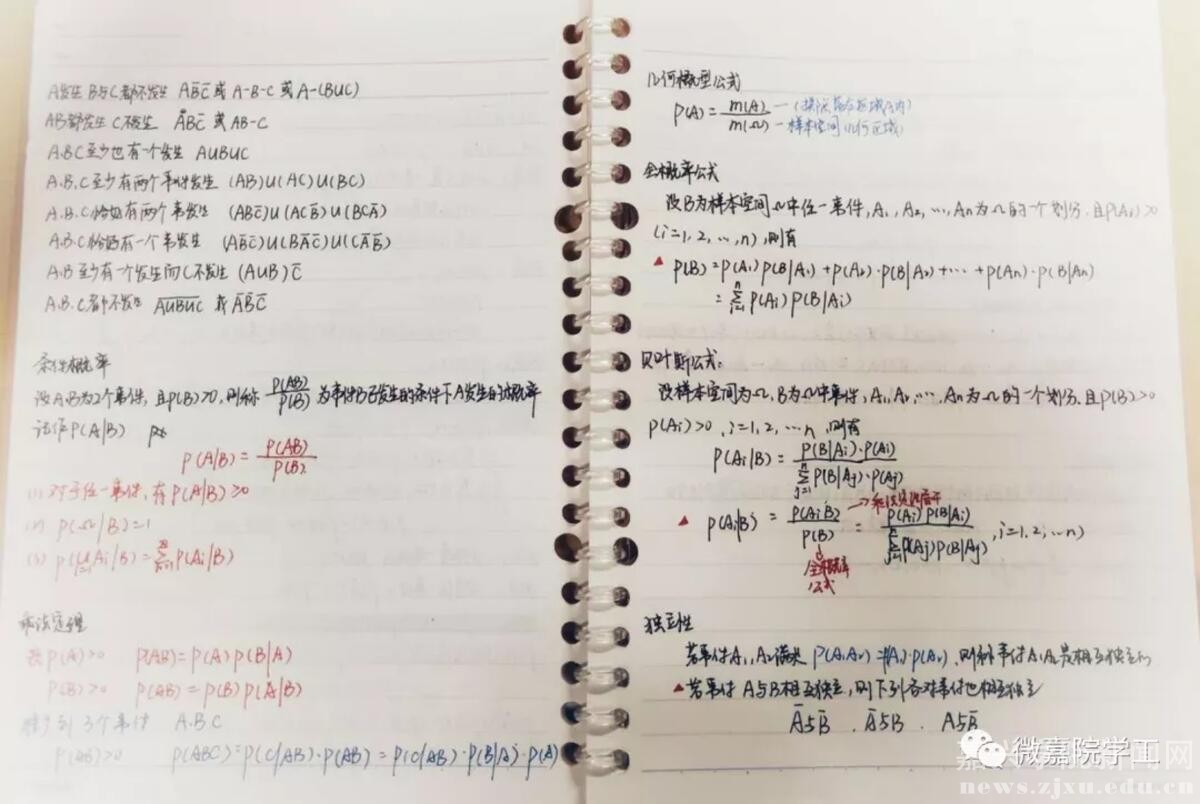 A发生B与C都不发生 AB̅C̅ 或 A-B-C 或 A-(BUC)
AB都发生C不发生 ABC̅ 或 AB-C
A.B.C至少也有一个发生 AUBUC
A.B.C至少有两个事件发生 (AB)U(AC)U(BC)
A.B.C恰好有两个事发生 (ABC̅)U(ACB̅)U(BCA̅)
A.B.C恰好有一个事发生 (AB̅C̅)U(BA̅C̅)U(CA̅B̅)
A.B至少有一个发生而C不发生 (AUB)C̅
A.B.C都不发生 A̅U̅B̅U̅C̅ 或 A̅B̅C̅
条件概率
设A.B为2个事件,且P(B)>0,则称 P(AB)/P(B) 为事件B已发生的条件下A发生的概率
记作P(A|B)
P(A|B)= P(AB)/P(B)
(1) 对于任一事件,有P(A|B)≥0
(2) P(Ω|B)=1
(3) P(∪Ai|B)=∑P(Ai|B)
乘法定理
P(A)>0 P(AB)=P(A)P(B|A)
P(B)>0 P(AB)=P(B)P(A|B)
推广到3个事件 A.B.C
P(AB)>0 P(ABC)=P(C|AB)·P(AB)=P(C|AB)·P(B|A)·P(A)
几何概型公式
P(A)= m(A)/m(Ω)
样本空间几何区域
全概率公式
设B为样本空间Ω中任一事件,A₁,A₂,…,An为Ω的一个划分,且P(Ai)>0
(i=1,2,…,n),则有
▲ P(B)=P(A₁)P(B|A₁)+P(A₂)·P(B|A₂)+…+P(An)·P(B|An)
=∑ⁿᵢ₌₁ P(Ai)P(B|Ai)
贝叶斯公式:
设样本空间为Ω,B为Ω中事件,A₁,A₂,…,An为Ω的一个划分,且P(B)>0
P(Ai)>0,i=1,2,…n,则有
P(Ai|B)= P(B|Ai)·P(Ai) / ∑ⁿⱼ₌₁ P(B|Aj)·P(Aj)
▲ P(Ai|B) = P(AiB)/P(B) = P(Ai)P(B|Ai) / ∑ⁿⱼ₌₁ P(Aj)P(B|Aj) ,i=1,2,…n)
全概率
公式
独立性
若事件A₁,A₂满足 P(A₁A₂)=P(A₁)·P(A₂),则称事件A₁A₂是相互独立的
▲若事件A与B相互独立,则下列各对事件也相互独立
A̅与B̅ . A̅与B . A与B̅
微嘉院学工
news.zjxu.edu.cn